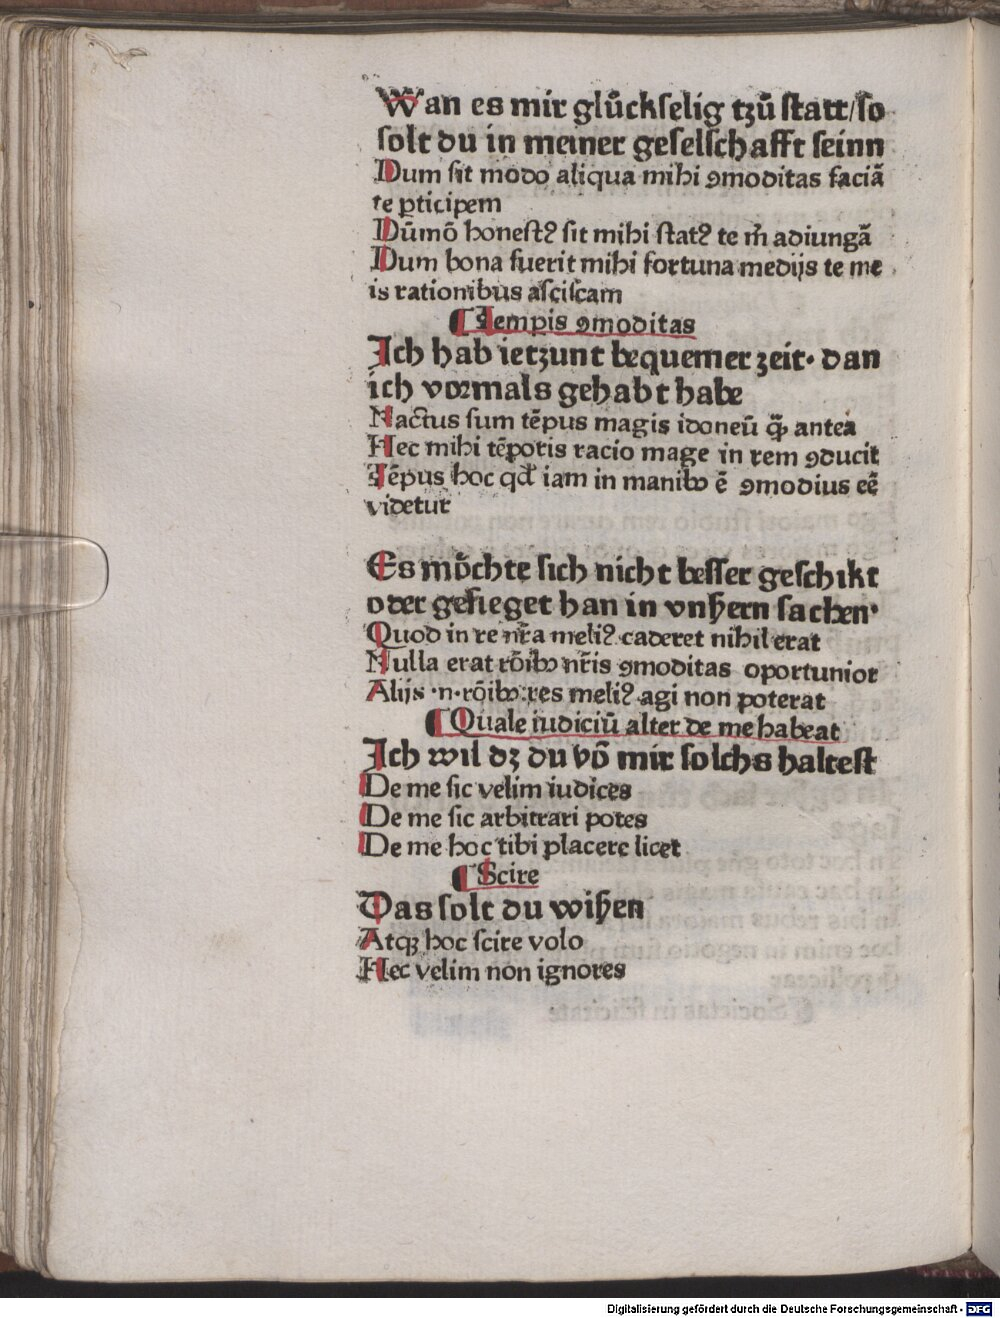 Wan es mir glu̇ckſelig tzu̇ ſtatt/ſo
ſolt du in meiner geſelſchafft ſeinn
Dum ſit modo aliqua mihi ꝯmoditas faciā
te ꝑticipem
Dūmō honeſtꝰ ſit mihi ſtatꝰ te m̄ adiungā
Dum bona fuerit mihi fortuna medijs te me
is rationibus aſciſcam
¶ Tempis ꝯmoditas
Ich hab ietzunt bequemer zeit· dan
ich voꝛmals gehabt habe
Nactus ſum tēpus magis idoneū q̄ꝫ antea
Hec mihi tēporis racio mage in rem ꝯducit
Tēpus hoc qd̛ iam in manibꝰ ē ꝯmodius eē
videtur
Es mȯchte ſich nicht beſſer geſchikt
oder gefieget han in vnßern ſachen·
Quod in re nr̄a meliꝰ caderet nihil erat
Nulla erat rōibꝰ nr̄is ꝯmoditas oportunior
Alijs ·n· rōibꝰ res meliꝰ agi non poterat
¶ Quale iudiciū alter de me habeat
Ich wil dz du vō mir ſolchs halteſt
De me ſic velim iudices
De me ſic arbitrari potes
De me hoc tibi placere licet
¶ Scire
Das ſolt du wißen
Atqꝫ hoc ſcire volo
Hec velim non ignores
Digitalisierung gefördert durch die Deutsche Forschungsgemeinschaft - DFG